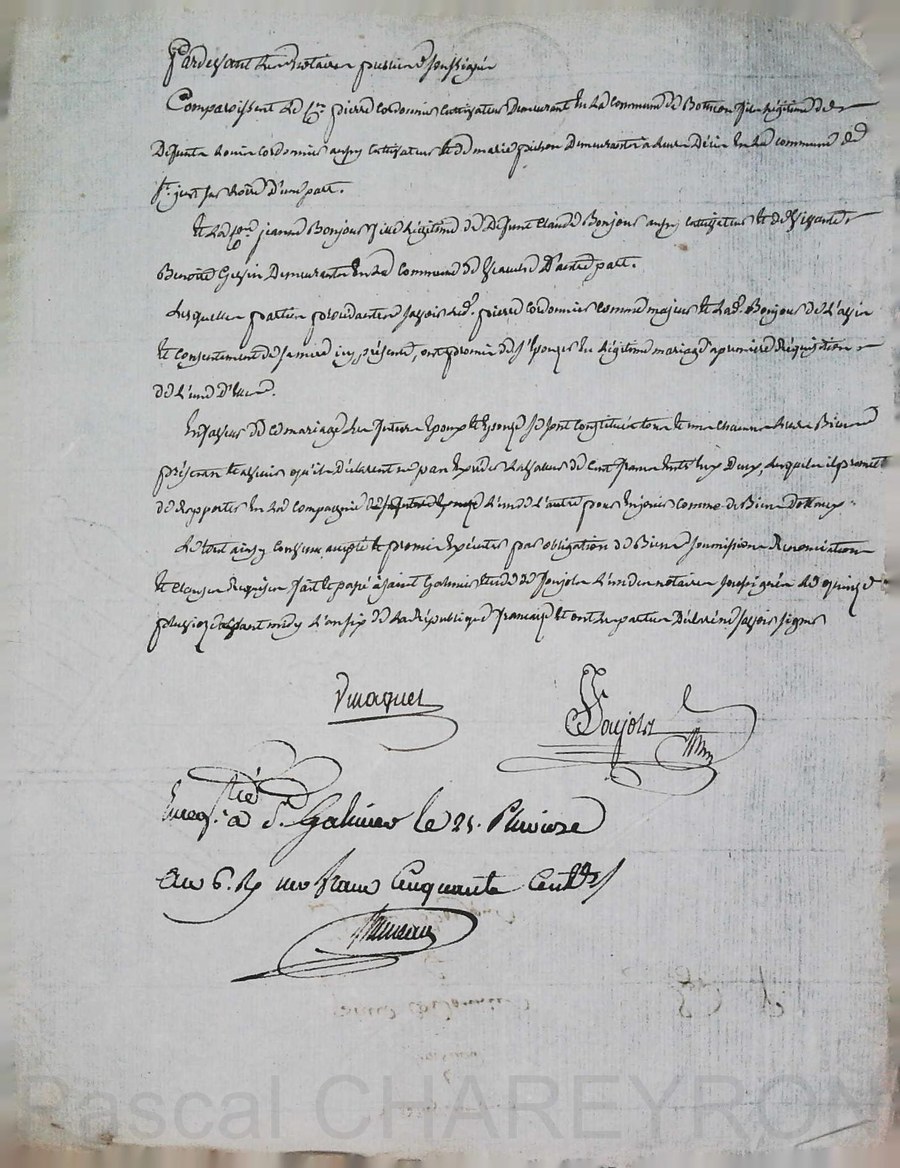 Pardevant Les Notaires publics soussignés
Comparoissent Le Cen pierre cordonnier cultivateur Demeurant En La commune de Bothéon fils Légitime de
Defunt Louis cordonnier aussy cultivateur Et de marie pitson Demeurante a leur Décès En La commune de
St. just sur Loire D'une part.
Et La Cne jeanne Bonjour fille Légitime de Defunt Claude Bonjour aussy cultivateur Et de Vivante
Benoite Demeurante En La Commune de D'autre part.
Lesquelles parties procedantes savoir Led. pierre cordonnier comme majeur Et Lad. Bonjour de L'avis
Et consentement de sa mere icy présente, ont promis de s'Epouser En Légitime mariage a premiere Réquisition
de L'une D'elles.
En faveur de ce mariage Les futurs Epoux Et Epouse se sont constitués tous Et un chacun Leurs Biens
présens Et avenirs qu'ils déclarent ne pas Excéder La valeur de Cent francs Entr'eux Deux, Lesquels ils promettent
de Rapporter En La Compagnie L'un de L'autre pour En jouir comme de Biens Dotaux.
Le tout ainsy convenu, accepté Et promis Exécuter par obligation de Biens soumissions Renonciations
Et clauses Requises fait Et passé a saint Galmier Etude de Poujola L'un des notaires soussignés Le quinze
pluviose avant midy L'an six de La République française Et ont Les parties Déclaré savoir signer
Poujola
Enregtré a St. Galmier le 25. Pluviose
an 6. Rç un franc Cinquante Cent.es
Pascal CHAREYRON